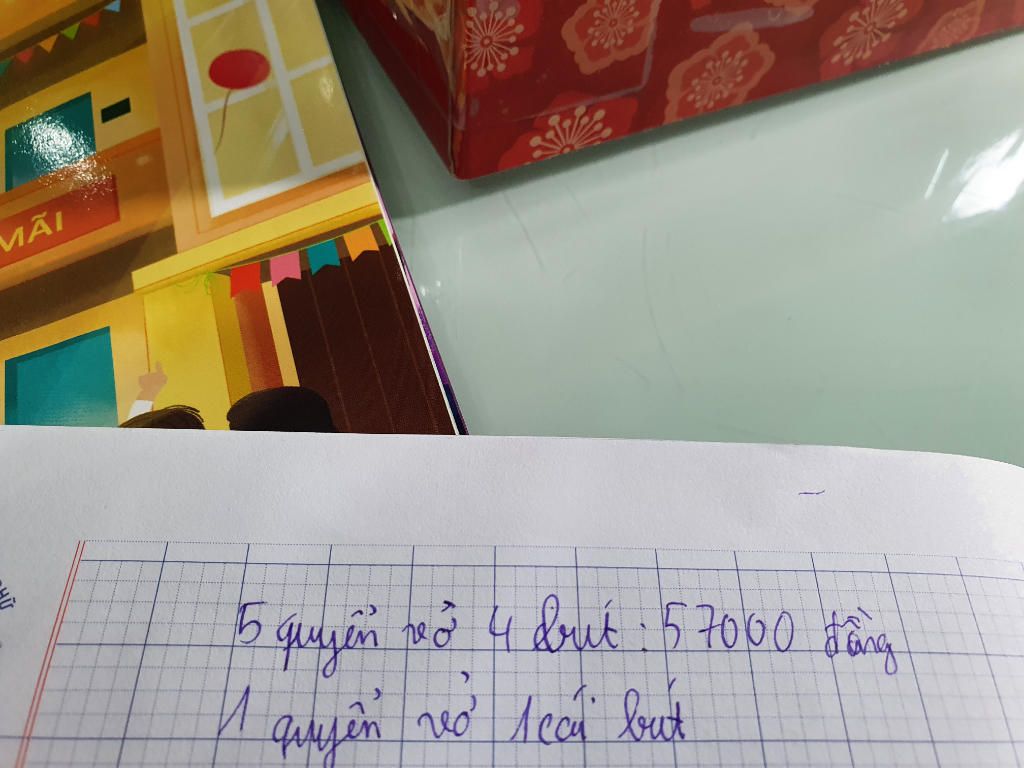 MÃI
5 quyển vở 4 bút: 57000 đồng
1 quyển vở 1 cái bút